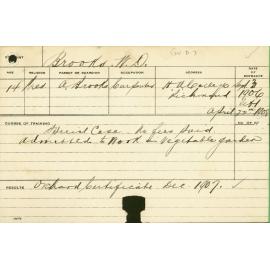 Brooks, W. D. (W D.)
AGE RELIGION PARENT OR GUARDIAN OCCUPATION ADDRESS
14 Pres A. Brooks Carpenter
Richmond 1906
April 22nd 1908
COURSE OF TRAINING
Burist Case. No fees paid.
admitted to Work in Vegetable garden
RESULTS Orchard Certificate Dec 1907.